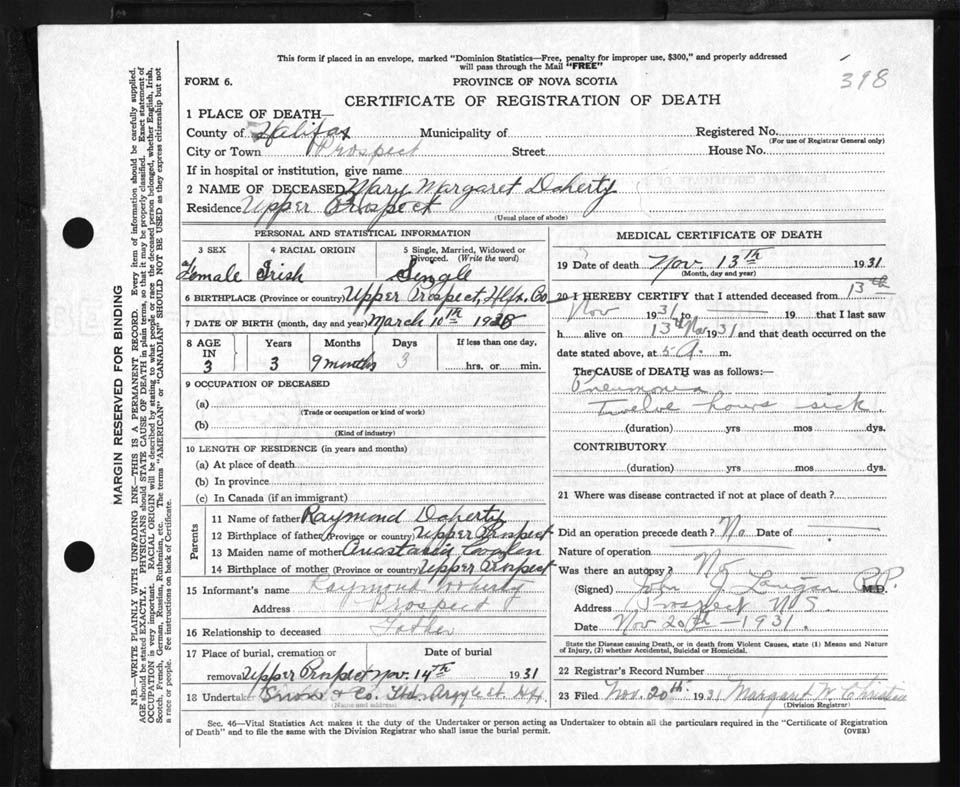 This form if placed in an envelope, marked "Dominion Statistics—Free, penalty for improper use, $300," and properly addressed
will pass through the Mail "FREE"
398
FORM 6.
PROVINCE OF NOVA SCOTIA
CERTIFICATE OF REGISTRATION OF DEATH
1 PLACE OF DEATH—
County of Halifax Municipality of Registered No.
(For use of Registrar General only)
City or Town Prospect Street House No.
If in hospital or institution, give name
2 NAME OF DECEASED Mary Margaret Doherty
Residence Upper Prospect
(Usual place of abode)
PERSONAL AND STATISTICAL INFORMATION
3 SEX 4 RACIAL ORIGIN 5 Single, Married, Widowed or
Divorced. (Write the word)
Female Irish Single
6 BIRTHPLACE (Province or country) Upper Prospect, Hfx. Co
7 DATE OF BIRTH (month, day and year) March 10th 1928
8 AGE Years Months Days If less than one day,
IN
3 3 9 months 3 hrs. or min.
9 OCCUPATION OF DECEASED
(a)
(Trade or occupation or kind of work)
(b)
(Kind of industry)
10 LENGTH OF RESIDENCE (in years and months)
(a) At place of death
(b) In province
(c) In Canada (if an immigrant)
Parents
11 Name of father Raymond Doherty
12 Birthplace of father (Province or country) Upper Prospect
13 Maiden name of mother Anastasia
14 Birthplace of mother (Province or country) Upper Prospect
15 Informant's name Raymond Doherty
Address Prospect
16 Relationship to deceased Father
17 Place of burial, cremation or Date of burial
removal Upper Prospect Nov. 14th 1931
18 Undertaker Snow & Co. Argyle St. Hfx.
(Name and address)
MEDICAL CERTIFICATE OF DEATH
19 Date of death Nov. 13th 1931
(Month, day and year)
20 I HEREBY CERTIFY that I attended deceased from 13th
Nov 1931 to 19 that I last saw
h alive on 13th Nov 1931 and that death occurred on the
date stated above, at 5 A. m.
The CAUSE of DEATH was as follows:—
Pneumonia
Twelve hours sick.
(duration) yrs mos dys.
CONTRIBUTORY
(duration) yrs mos dys.
21 Where was disease contracted if not at place of death?
Did an operation precede death? No Date of
Nature of operation
Was there an autopsy? No
(Signed) John J. Lanigan P.P. M.D.
Address Prospect N.S.
Date Nov 20th—1931.
State the Disease Causing Death, or in death from Violent Causes, state (1) Means and Nature
of Injury, (2) whether Accidental, Suicidal or Homicidal.
22 Registrar's Record Number
23 Filed Nov. 20th 1931 Margaret W Christie
(Division Registrar)
Sec. 46—Vital Statistics Act makes it the duty of the Undertaker or person acting as Undertaker to obtain all the particulars required in the "Certificate of Registration
of Death" and to file the same with the Division Registrar who shall issue the burial permit.
(OVER)
MARGIN RESERVED FOR BINDING
N.B.—WRITE PLAINLY WITH UNFADING INK—THIS IS A PERMANENT RECORD. Every item of information should be carefully supplied.
AGE should be stated EXACTLY. PHYSICIANS should STATE CAUSE OF DEATH in plain terms, so that it may be properly classified. Exact statement of
OCCUPATION is very important. RACIAL ORIGIN will be described by stating to what people or race the deceased person belonged, whether English, Irish,
Scotch, French, German, Russian, Ruthenian, etc. The terms "AMERICAN" or "CANADIAN" SHOULD NOT BE USED as they express citizenship but not
a race or people. See instructions on back of Certificate.